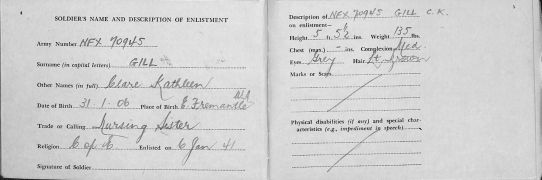 SOLDIER'S NAME AND DESCRIPTION OF ENLISTMENT
Army Number NFX 70945
Surname (in capital letters) GILL
Other Names (in full) Clare Kathleen
Date of Birth 31 1. 06 Place of Birth E. Fremantle WA
Trade or Calling Nursing Sister
Religion C of E. Enlisted on 6 Jan 41
Signature of Soldier
Description of NFX 70945 GILL C.K.
on enlistment—
Height 5 ft. 5½ ins. Weight 135 lbs.
Chest (max.) - ins. Complexion Med.
Eyes Grey Hair Lt. Brown
Marks or Scars
Physical disabilities (if any) and special char-
acteristics (e.g., impediment in speech)